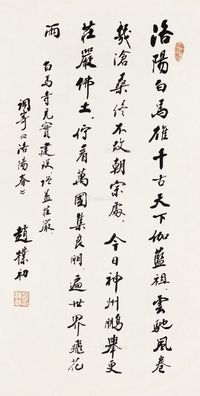 洛陽白馬雄千古天下伽藍祖雲馳風卷
幾滄桑終不改朝宗處今日神州鵬舉更
莊嚴佛土佇看萬國集良朋遍世界飛花
雨
白馬寺充實建設增益莊嚴
調寄洛陽春
趙樸初